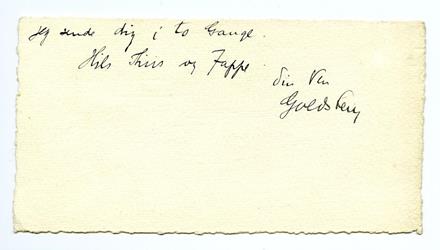 jeg sende dig i to Gange.
Hils Thiis og Jappe.
din Ven
Goldberg